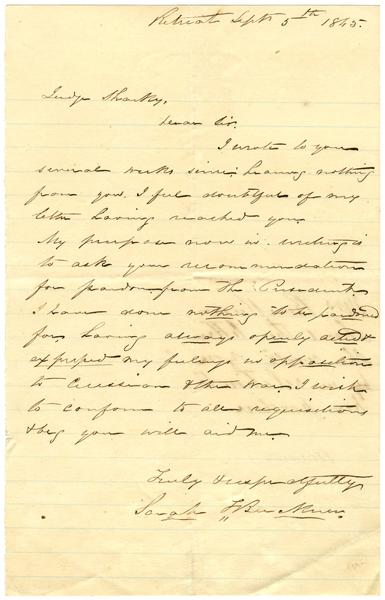 Retreat Sept 5th 1865.
Judge Sharkey,
Dear Sir.
I wrote to you
several weeks since, hearing nothing
from you. I feel doubtful of my
letter having reached you.
My purpose now in writing is
to ask your recommendation
for pardon from the President.
I have done nothing to be pardoned
for having always openly acted &
expressed my feelings in opposition
to Cecession & the War. I wish
to conform to all requisitions
& beg you will aid me.
Truly & respectfully
Sarah